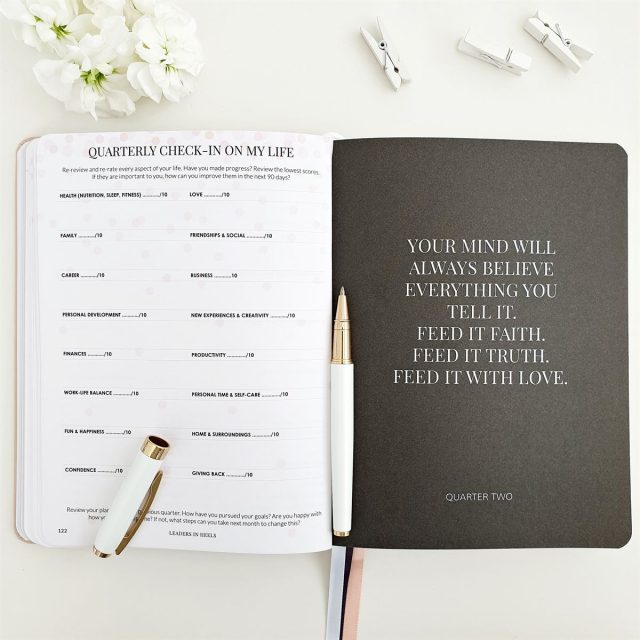 QUARTERLY CHECK-IN ON MY LIFE
Re-review and re-rate every aspect of your life. Have you made progress? Review the lowest scores.
If they are important to you, how can you improve them in the next 90 days?
HEALTH (NUTRITION, SLEEP, FITNESS) ............/10
LOVE ............/10
FAMILY ............/10
FRIENDSHIPS & SOCIAL ............/10
CAREER ............/10
BUSINESS ............10
PERSONAL DEVELOPMENT ............/10
NEW EXPERIENCES & CREATIVITY ............/10
FINANCES ............/10
PRODUCTIVITY ............/10
WORK-LIFE BALANCE ............/10
PERSONAL TIME & SELF-CARE ............/10
FUN & HAPPINESS ............/10
HOME & SURROUNDINGS ............/10
CONFIDENCE ............/10
GIVING BACK ............/10
Review your plan ious quarter. How have you pursued your goals? Are you happy with
how yo me? If not, what steps can you take next month to change this?
122
LEADERS IN HEELS
YOUR MIND WILL
ALWAYS BELIEVE
EVERYTHING YOU
TELL IT.
FEED IT FAITH.
FEED IT TRUTH.
FEED IT WITH LOVE.
QUARTER TWO